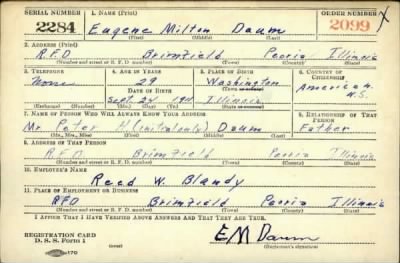 SERIAL NUMBER 1. NAME (Print) ORDER NUMBER
2284 Eugene Milton Daum 2099 X
(First) (Middle) (Last)
2. ADDRESS (Print)
RFD Brimfield Peoria Illinois
(Number and street or R. F. D. number) (Town) (County) (State)
3. TELEPHONE 4. AGE IN YEARS 5. PLACE OF BIRTH 6. COUNTRY OF CITIZENSHIP
None 29 Washington American
(Town or county)
DATE OF BIRTH
Sept 24 1911 Illinois U.S.
(Exchange) (Number) (Mo.) (Day) (Yr.) (State or country)
7. NAME OF PERSON WHO WILL ALWAYS KNOW YOUR ADDRESS 8. RELATIONSHIP OF THAT PERSON
Mr Peter H (initial only) Daum Father
(Mr., Mrs., Miss) (First) (Middle) (Last)
9. ADDRESS OF THAT PERSON
RFD Brimfield Peoria Illinois
(Number and street or R. F. D. number) (Town) (County) (State)
10. EMPLOYER'S NAME
Reed W. Blandy
11. PLACE OF EMPLOYMENT OR BUSINESS
RFD Brimfield Peoria Illinois
(Number and street or R. F. D. number) (Town) (County) (State)
I AFFIRM THAT I HAVE VERIFIED ABOVE ANSWERS AND THAT THEY ARE TRUE.
REGISTRATION CARD
D. S. S. Form 1 E M Daum
(Registrant's signature)